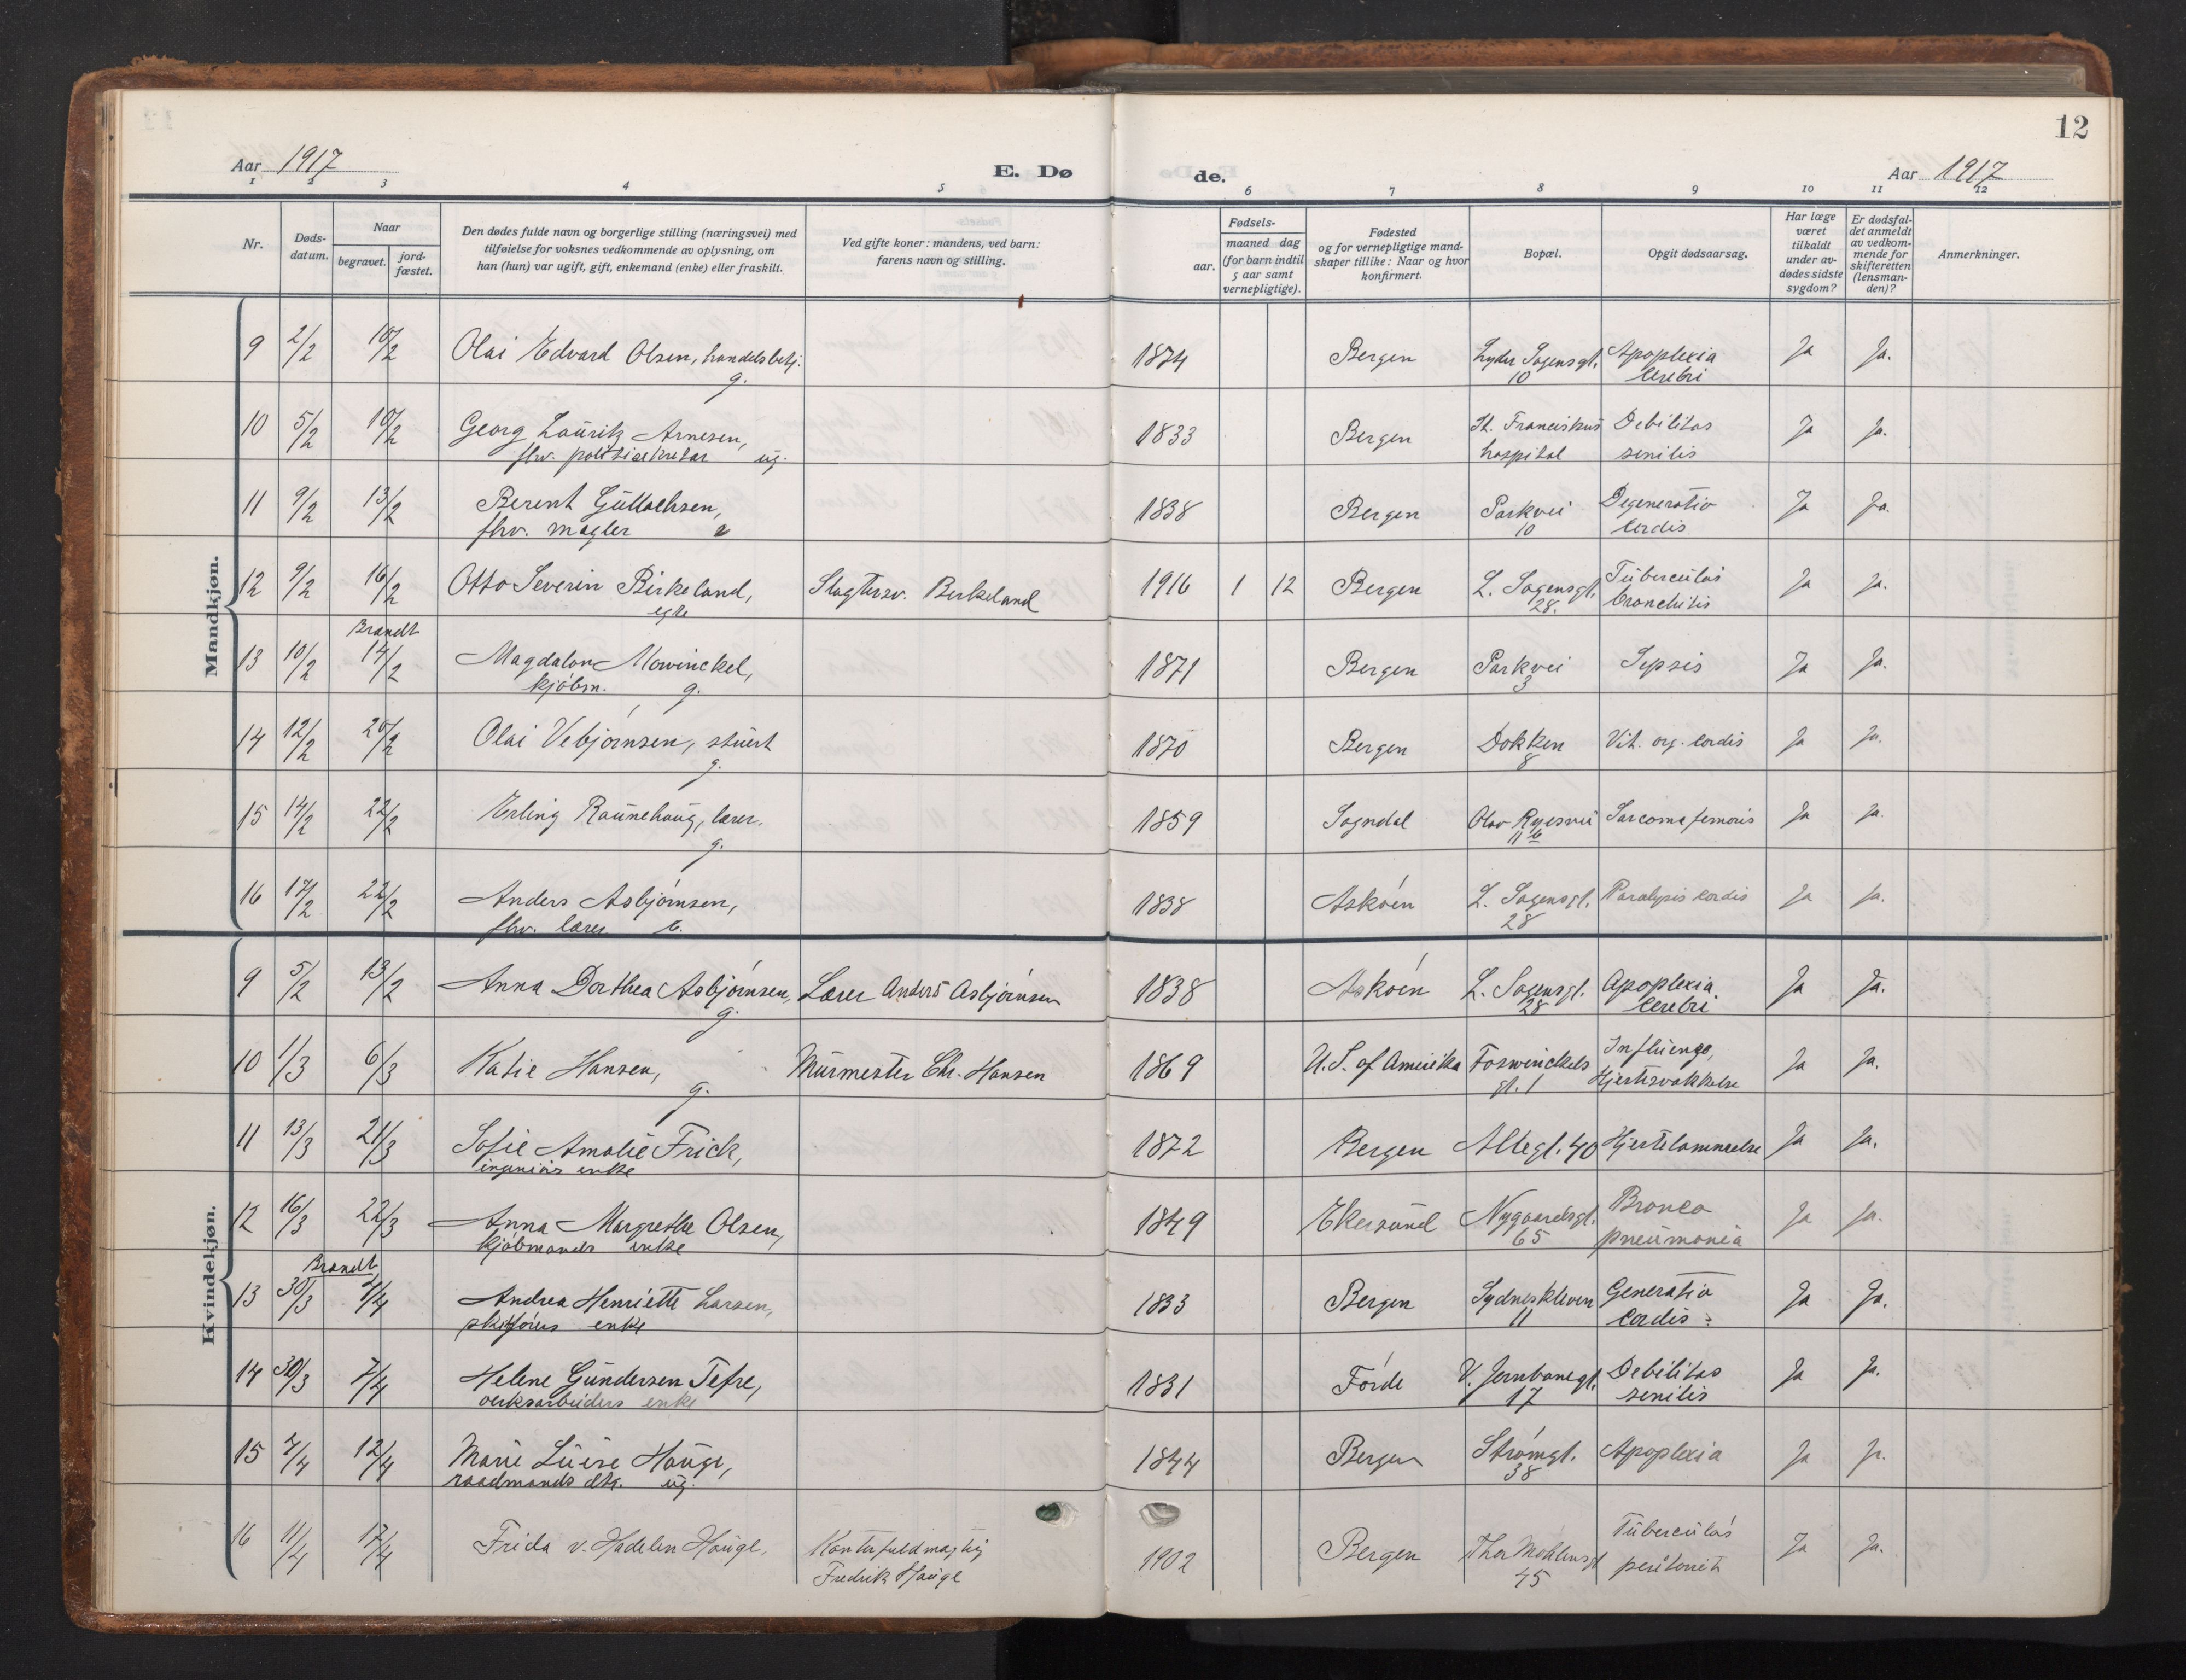 12
Aar 1917
E. Dø
de.
Aar 1917
1 2 3 4 5 6 7 8 9 10 11 12
Nr.
Døds-
datum.
Naar
begravet.
jord-
fæstet.
Den dødes fulde navn og borgerlige stilling (næringsvei) med
tilføielse for voksnes vedkommende av oplysning, om
han (hun) var ugift, gift, enkemand (enke) eller fraskilt.
Ved gifte koner: mandens, ved barn:
farens navn og stilling.
Fødsels-
aar.
maaned dag
(for barn indtil
5 aar samt
vernepligtige).
Fødested
og for vernepligtige mand-
skaper tillike: Naar og hvor
konfirmert.
Bopæl.
Opgit dødsaarsag.
Har læge
været
tilkaldt
under av-
dødes sidste
sygdom?
Er dødsfal-
det anmeldt
av vedkom-
mende for
skifteretten
(lensman-
den)?
Anmerkninger.
Mandkjøn.
9 2/2 10/2 Olai Edvard Olsen, handelsbetj. 1874 Bergen Lyder Sagensgt. Apoplexia Ja Ja.
g. 10 cerebri
10 5/2 10/2 Georg Lauritz Arnesen, 1833 Bergen St. Franciskus Debilitas Ja Ja.
fhv. politisekretær ug. hospital senilis
11 9/2 13/2 Berent Gullachsen, 1838 Bergen Parkvei Degeneratio Ja Ja.
fhv. mægler 10 cordis
12 9/2 16/2 Otto Severin Birkeland, Slagtersv. Birkeland 1916 1 12 Bergen L. Sagensgt. Tuberculøs Ja Ja.
egte 28. bronchitis
Brandt
13 10/2 14/2 Magdalon Mowinckel, 1871 Bergen Parkvei Sepsis Ja Ja.
kjøbm. g. 3
14 12/2 20/2 Olai Vebjørnsen, stuert 1870 Bergen Dokken Vit. org. cordis Ja Ja.
g. 8
15 14/2 22/2 Erling Raunehaug, lærer. 1859 Sogndal Olav Ryesvei Sarcoma femoris Ja Ja.
g. 11 b
16 17/2 22/2 Anders Asbjørnsen, 1838 Askøen L. Sagensgt. Paralysis cordis Ja Ja.
fhv. lærer e. 28
Kvindekjøn.
9 5/2 13/2 Anna Dorthea Asbjørnsen, Lærer Anders Asbjørnsen 1838 Askøen L. Sagensgt. Apoplexia Ja Ja.
g. 28 cerebri
10 1/3 6/3 Katie Hansen, Murmester Chr. Hansen 1869 U.S. of Amerika Foswinckels Influenza, Ja Ja.
g. gt. 1 Hjertesvakkelse
11 13/3 21/3 Sofie Amalie Frick, 1872 Bergen Allegt. 40 Hjertelammelse Ja Ja.
ingeniørs enke
12 16/3 22/3 Anna Margrethe Olsen, 1849 Ekersund Nygaardsgt. Bronco Ja Ja.
kjøbmands enke 65 pneumonia
Brandt
13 30/3 4/4 Andrea Henriette Larsen, 1833 Bergen Sydneskleven Generatio Ja Ja.
skipførers enke 11 cordis
14 30/3 7/4 Helene Gundersen Tefre, 1831 Førde V. Jernbanegt. Debilitas Ja Ja.
verksarbeiders enke 17 senilis
15 7/4 12/4 Marie Luise Hauge, 1844 Bergen Strømgt. Apoplexia Ja Ja.
raadmands dtr. ug. 38
16 11/4 17/4 Frida v. Hadelen Hauge, Kontorfuldmægtig 1902 Bergen Thor Møhlensgt Tuberculøs Ja Ja.
Fredrik Hauge 45 peritonit